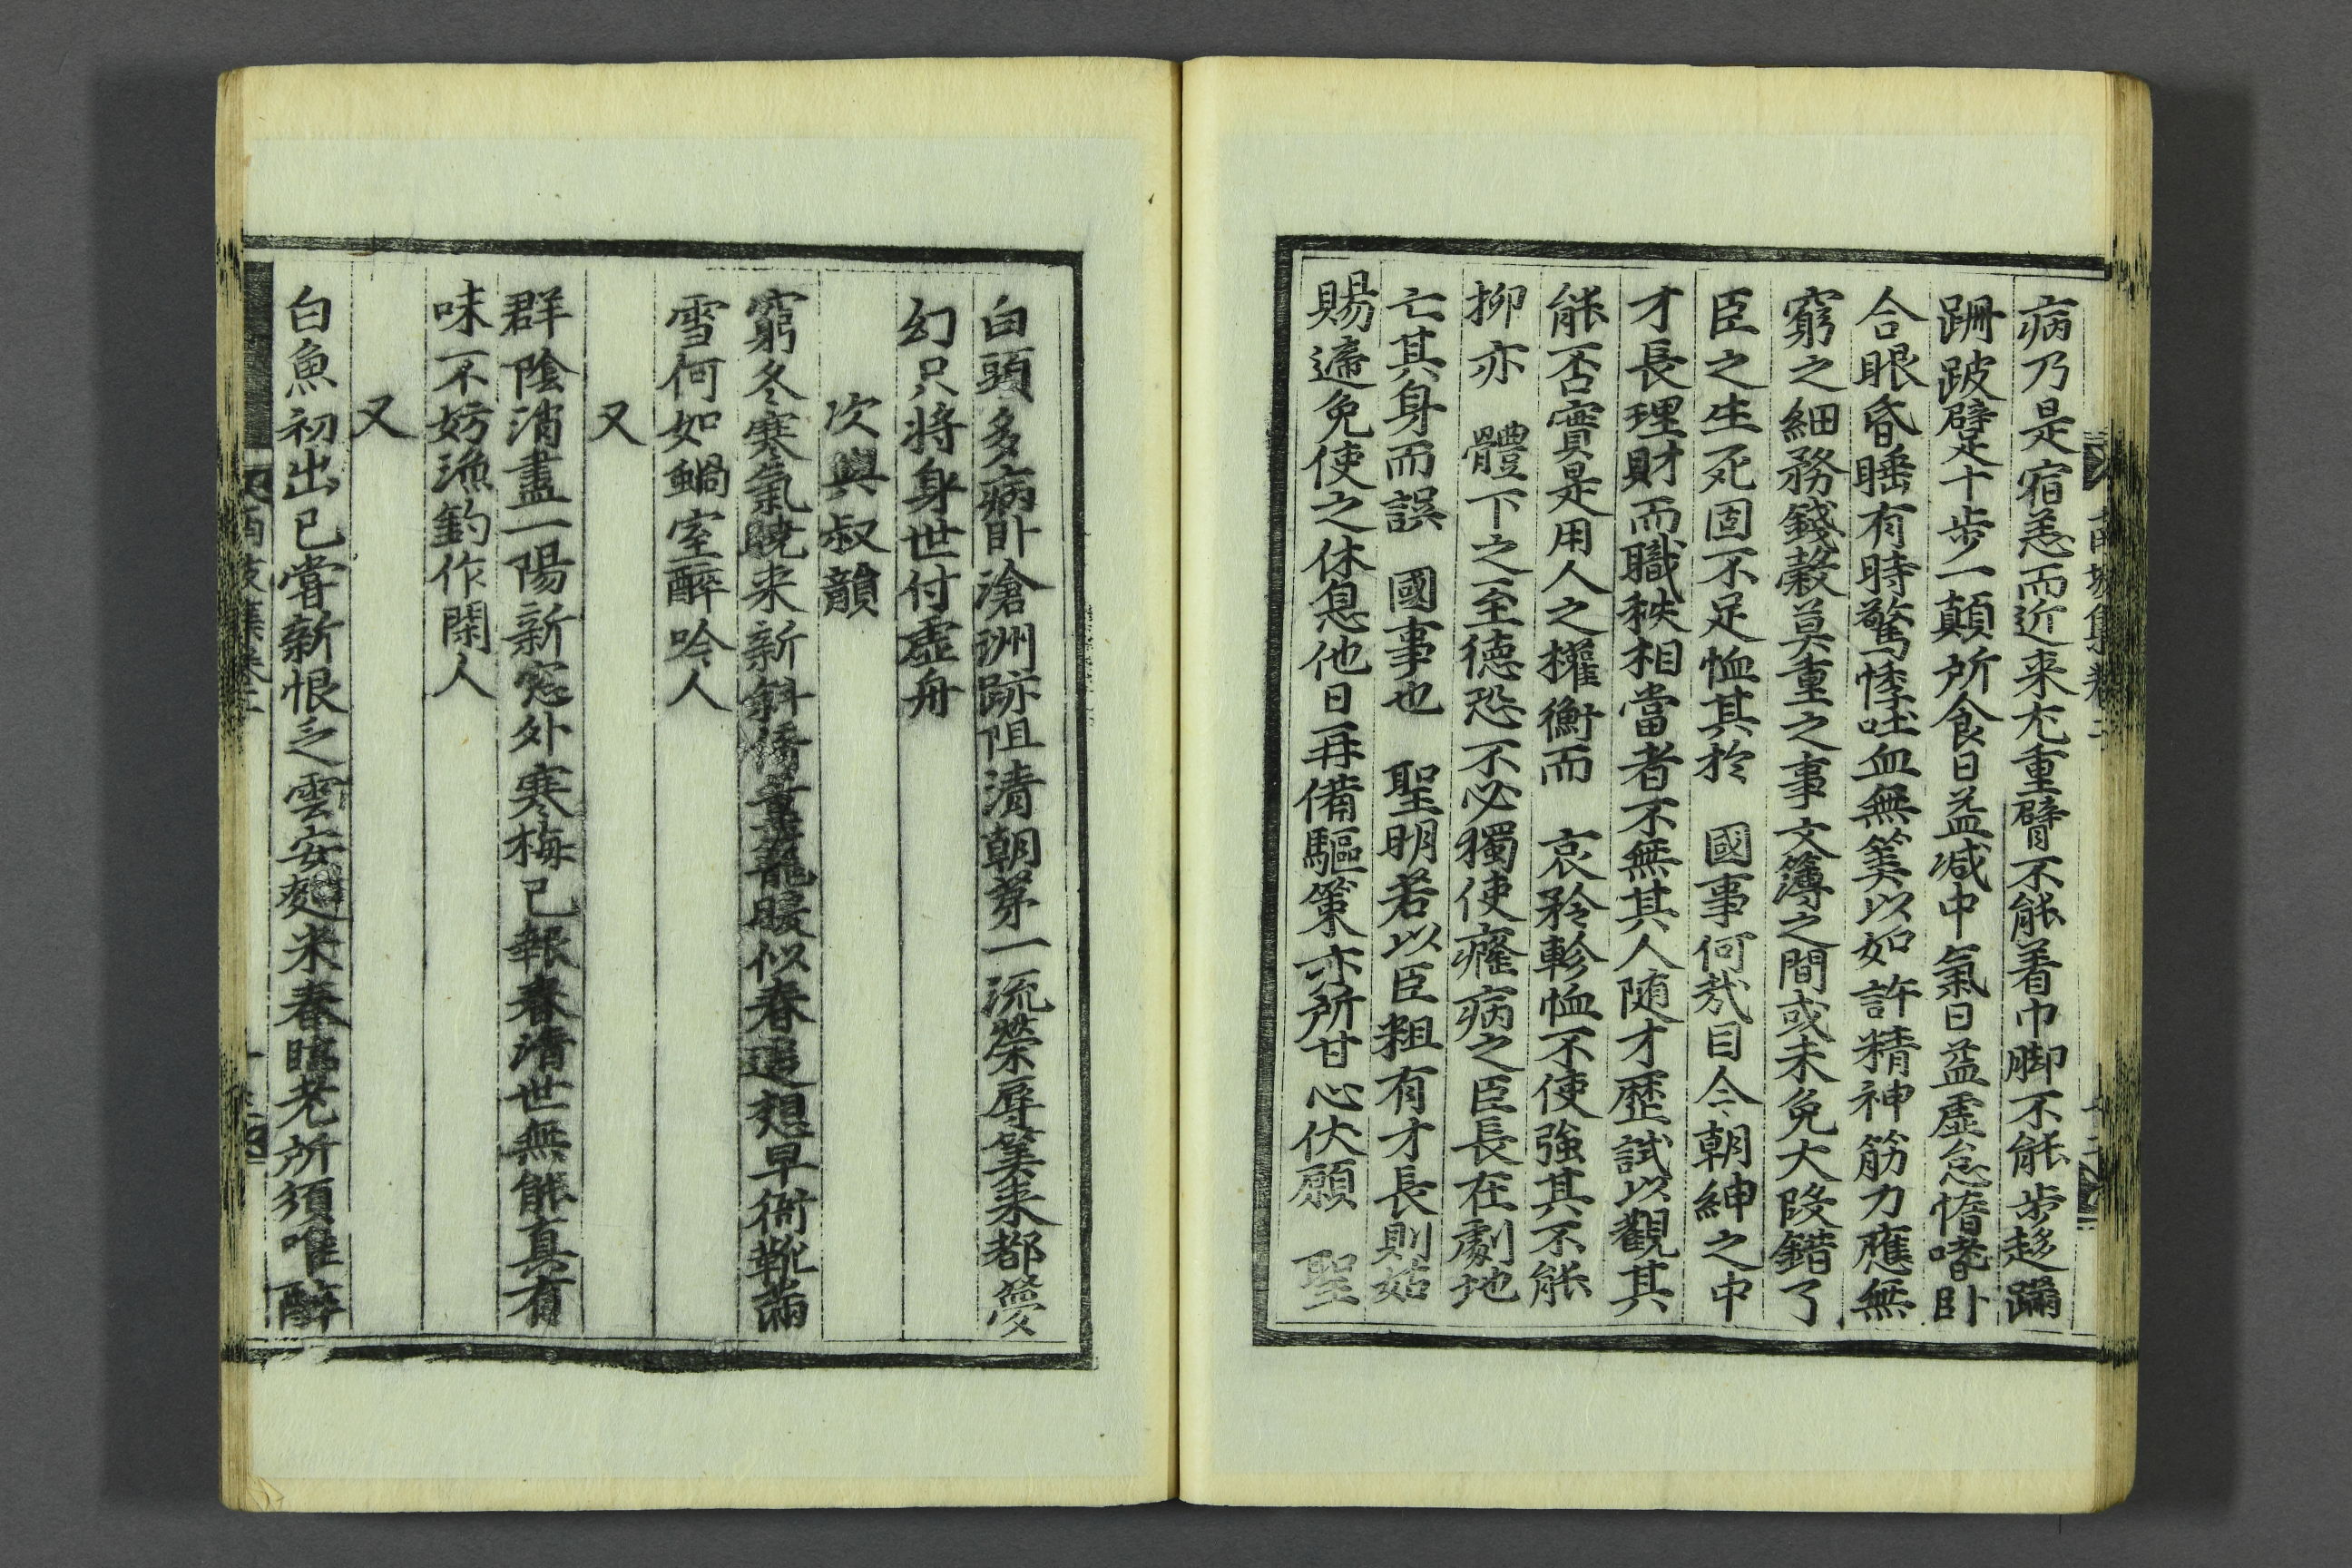 病乃是宿恙而近来尤重臂不能着巾脚不能步趍蹣
跚跛躄十步一顛所食日益减中氣日益虚怠惰嗜卧
合眼昏睡有時驚悸吐血無筭以如許精神筋力應無
窮之細務錢穀莫重之事文簿之間或未免大段錯了
臣之生死固不足恤其於 國事何㢤目今朝紳之中
才長理財而職秩相當者不無其人随才歷試以觀其
能否實是用人之權衡而 哀矜軫恤不使強其不能
抑亦 體下之至德恐不必獨使癃病之臣長在劇地
亡其身而誤 國事也 聖明若以臣粗有才長則姑
賜遞免使之休息他日再備驅策亦所甘心伏願 聖
白頭多病卧滄洲跡阻清朝苐一流榮辱筭来都夢
幻只將身世付虚舟
次與叔韻
窮冬寒氣曉来新斜倚薰籠暖似春追想早衙靴滿
雪何如蝸室醉吟人
又
群陰消盡一陽新窓外寒梅已報春濟世無能真有
味不妨漁釣作閑人
又
白魚初出已甞新恨乏雲安麴米春臨老所須唯醉